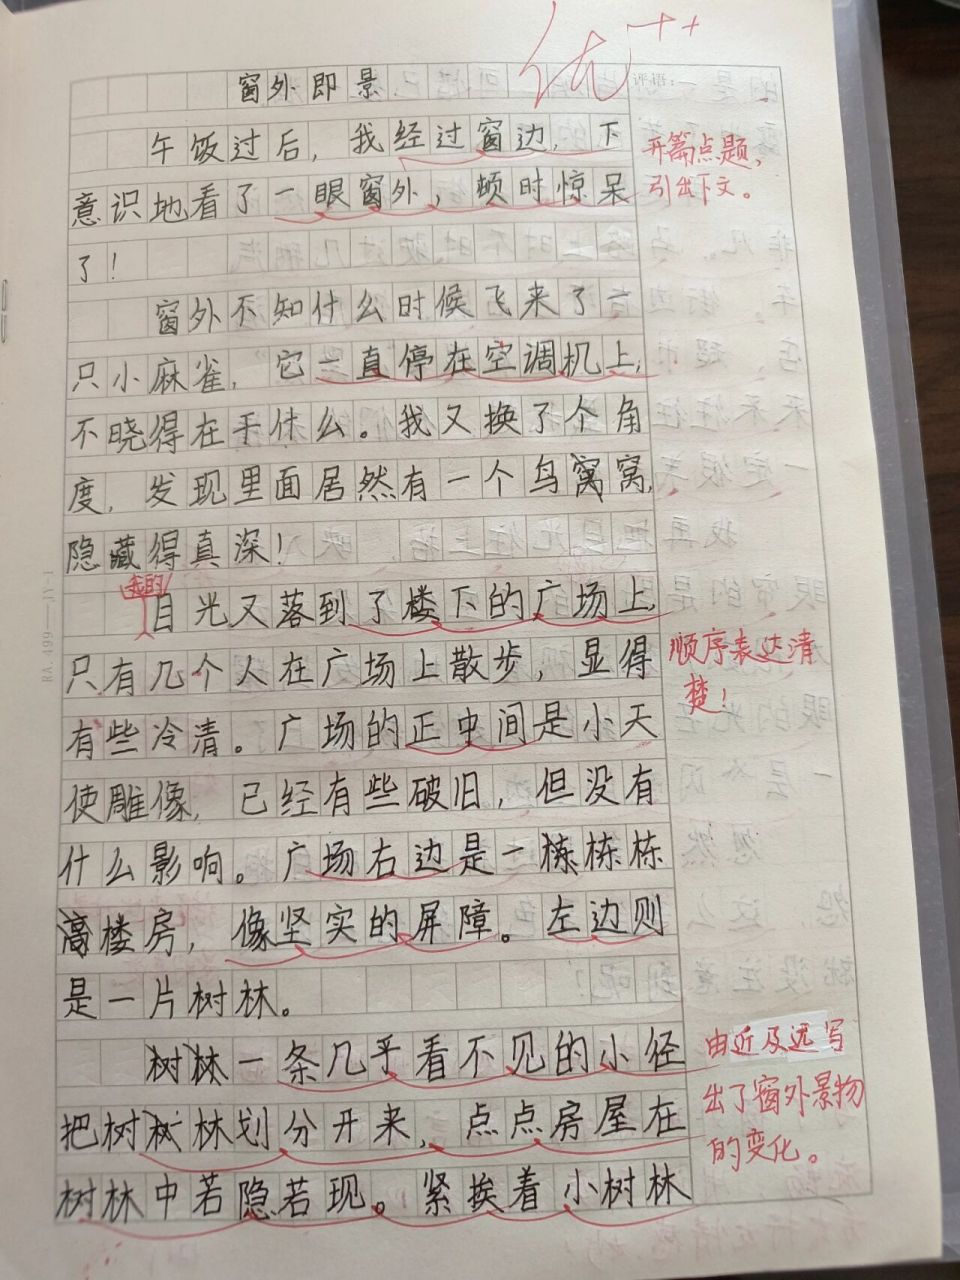 优++
窗外即景
评语:
午饭过后，我经过窗边，下
开篇点题，
意识地看了一眼窗外，顿时惊呆
引出下文。
了！
窗外不知什么时候飞来了一
只小麻雀，它一直停在空调机上，
不晓得在干什么。我又换了个角
度，发现里面居然有一个鸟窝窝，
隐藏得真深！
我的
目光又落到了楼下的广场上，
只有几个人在广场上散步，显得
顺序表达清
楚！
有些冷清。广场的正中间是小天
使雕像，已经有些破旧，但没有
什么影响。广场右边是一栋栋栋
高楼房，像坚实的屏障。左边则
是一片树林。
树林一条几乎看不见的小径
由近及远写
把树林划分开来，点点房屋在
出了窗外景物
的变化。
树林中若隐若现。紧挨着小树林